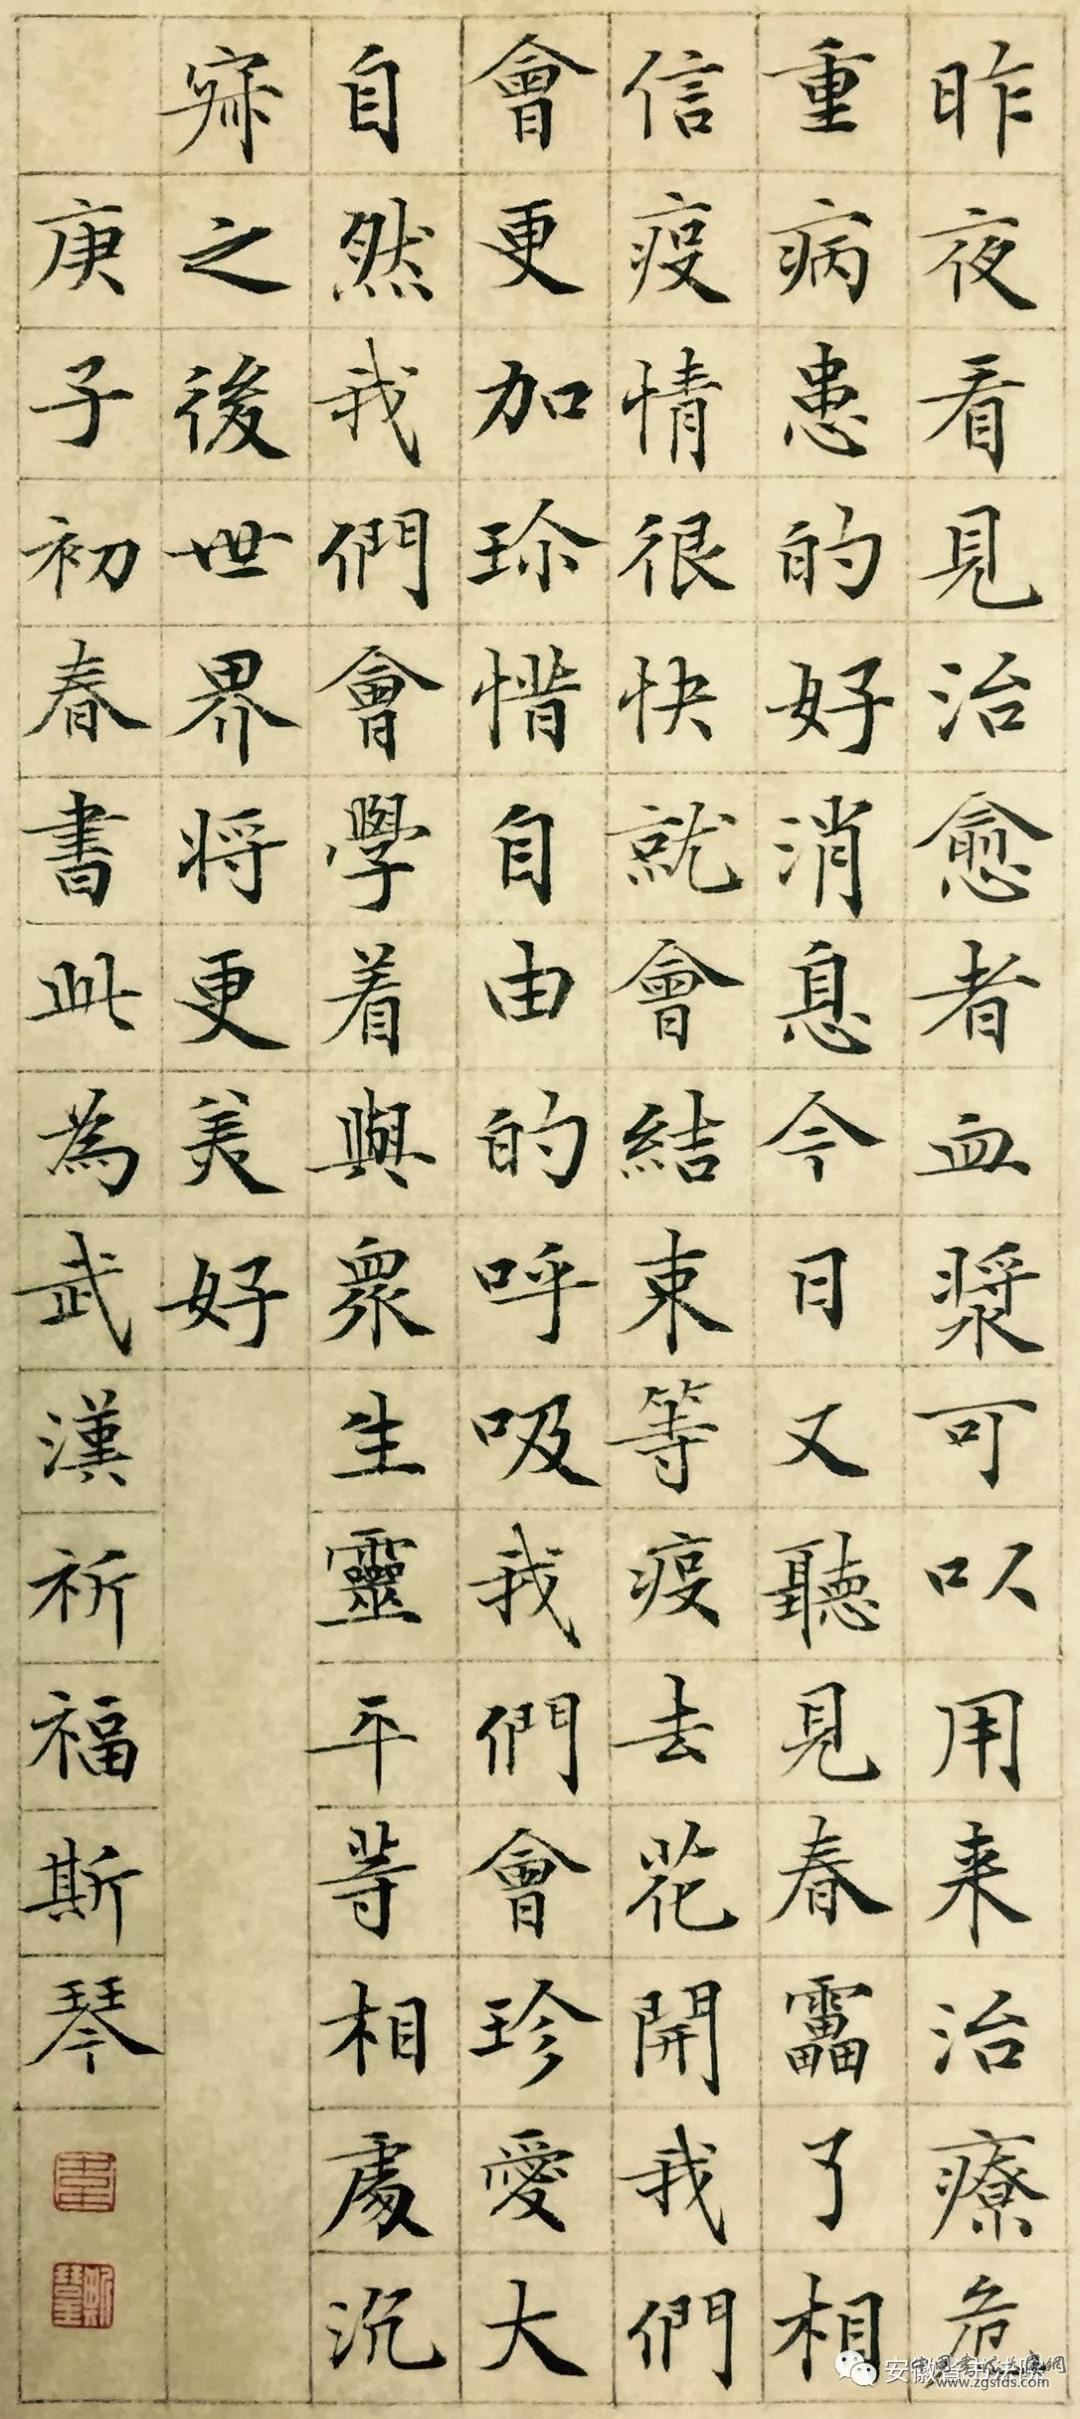 昨夜看見治愈者血漿可以用来治療危
重病患的好消息今日又聽見春靁了相
信疫情很快就會結束等疫去花開我們
會更加珎惜自由的呼吸我們會珍愛大
自然我們會學着與衆生靈平等相處沉
寂之後世界将更美好
庚子初春書此為武漢祈福斯琴
安徽省书法院
www.zgsfds.com